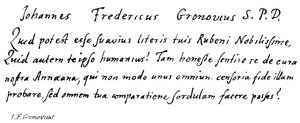 Johannes Fredericus Gronovius S.P.D.
Quid potest esse suavius literis tuis Rubeni Nobilissime,
Quid autem te ipso humanius? Tam honeste sentire de cura
nostra Annæana, qui non modo unus omnium censoria fide illam
probare, sed omnem tua comparatione sordulam facere posses?
J. F. Gronovius